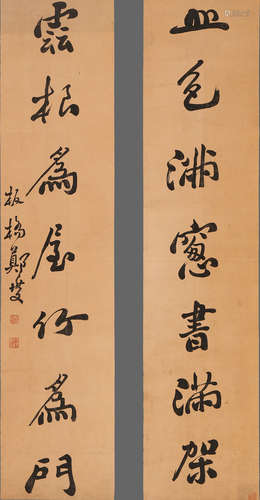 山色滿窻書滿架
雲根爲屋竹爲門
板橋鄭燮